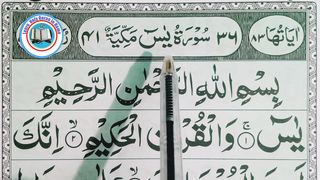 اٰيَاتُهَا ٨٣ ٣٦ سُوْرَةُ يٰسٓ مَكِّيَّةٌ ٤١
بِسْمِ اللّٰهِ الرَّحْمٰنِ الرَّحِيْمِ
يٰسٓ ١ وَالْقُرْاٰنِ الْحَكِيْمِ ٢ اِنَّكَ